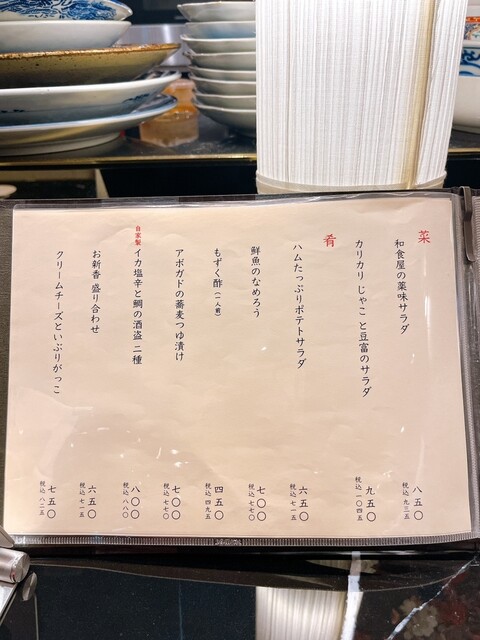 菜
和食屋の薬味サラダ
八五〇
税込 九三五
カリカリじゃこと豆富のサラダ
九五〇
税込 一〇四五
肴
ハムたっぷりポテトサラダ
六五〇
税込 七一五
鮮魚のなめろう
七〇〇
税込 七七〇
もずく酢(一人前)
四五〇
税込 四九五
アボガドの蕎麦つゆ漬け
七〇〇
税込 七七〇
自家製 イカ塩辛と鯛の酒盗 二種
八〇〇
税込 八八〇
お新香 盛り合わせ
六五〇
税込 七一五
クリームチーズといぶりがっこ
七五〇
税込 八二五